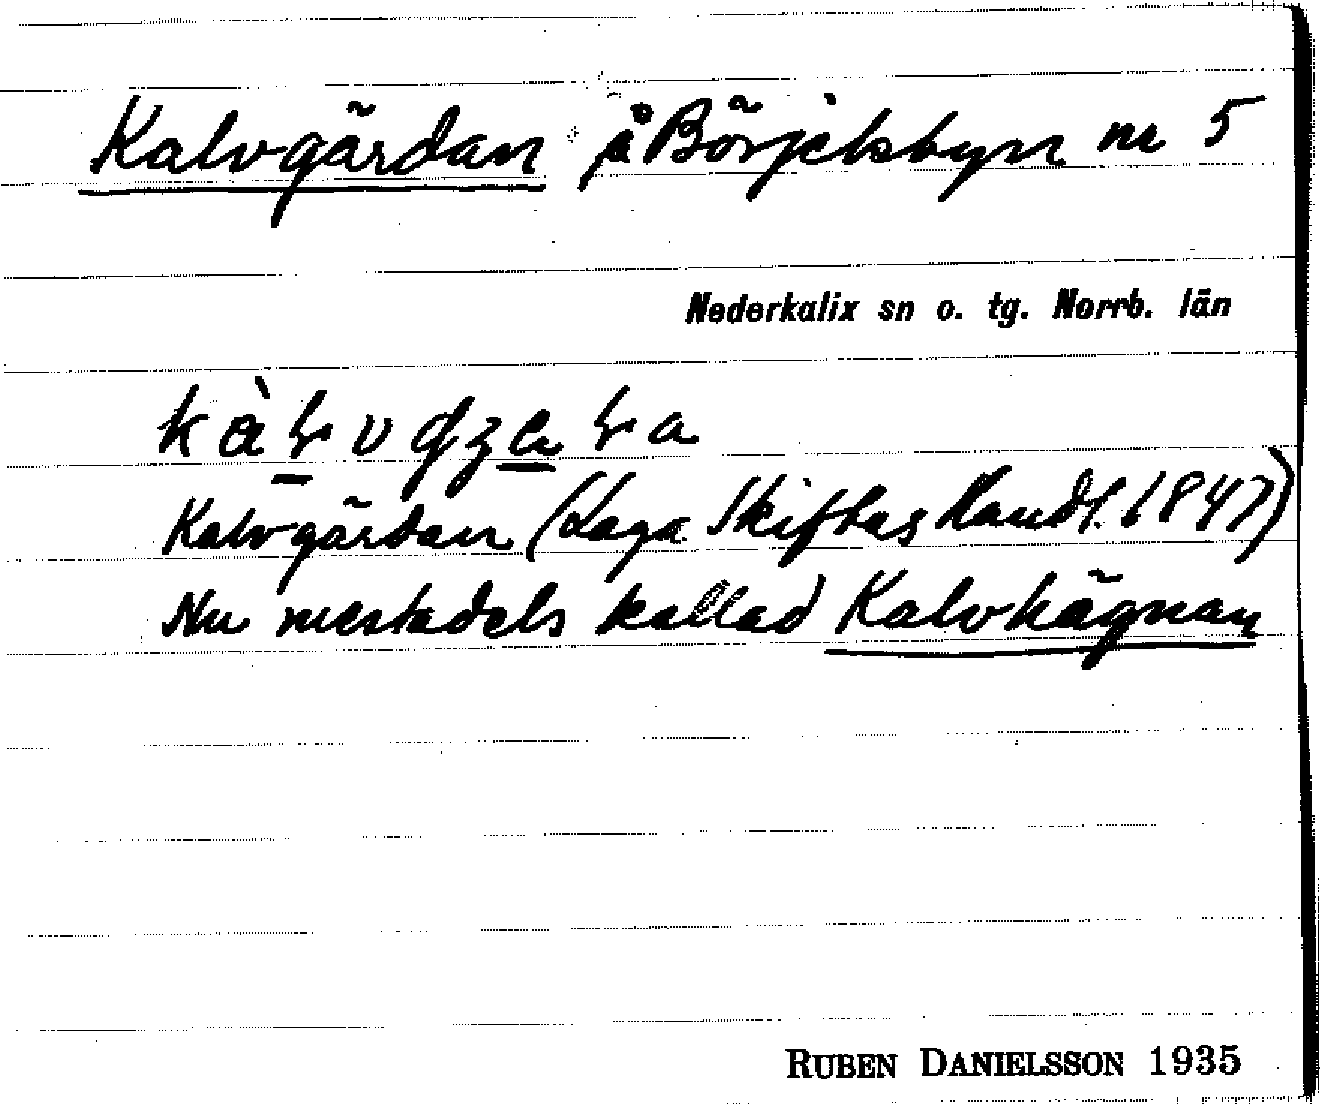 Kalvgärdan på Börjelsbyn nr 5
Nederkalix sn o. tg. Norrb. län
Kalvgärdan (Laga Skiftes Handl. 1847)
Nu mestadels kallad Kalvhägnan
RUBEN DANIELSSON 1935